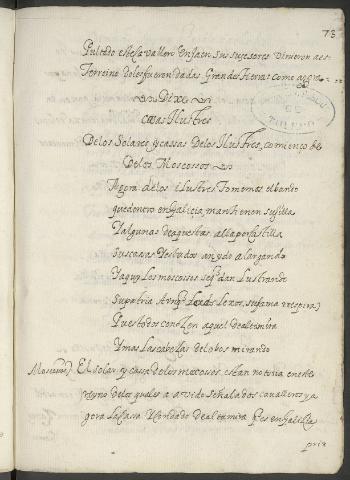 73
Pultado esta vallen en Jaen Sus suçesores vinieron a este
Terreino do les fueron dadas Grandes tierras como agora
Dixe
casas Ilustres
De los Solares y cassas De los Ilustres, comienço de
De los Moscossos
Agora de los ilustres tomemos el bando
que dentro en Galicia mantienen su silla
Y algunas de aquestas alla por Castilla
Sus casas y estados an ydo alargando
Y aquy los moscossos se dan lustrando
Su patria lexos, su fama
Pues todos conozen aquel de altamira
Y mas las cabezas de lobos mirando
Moscosos) El solar y cassa de los moscosos es tan notoria en este
reyno de los quales a avido señalados cavalleros y a
gora la casa y condado de altamira en Galizia
pria
TOLEDO